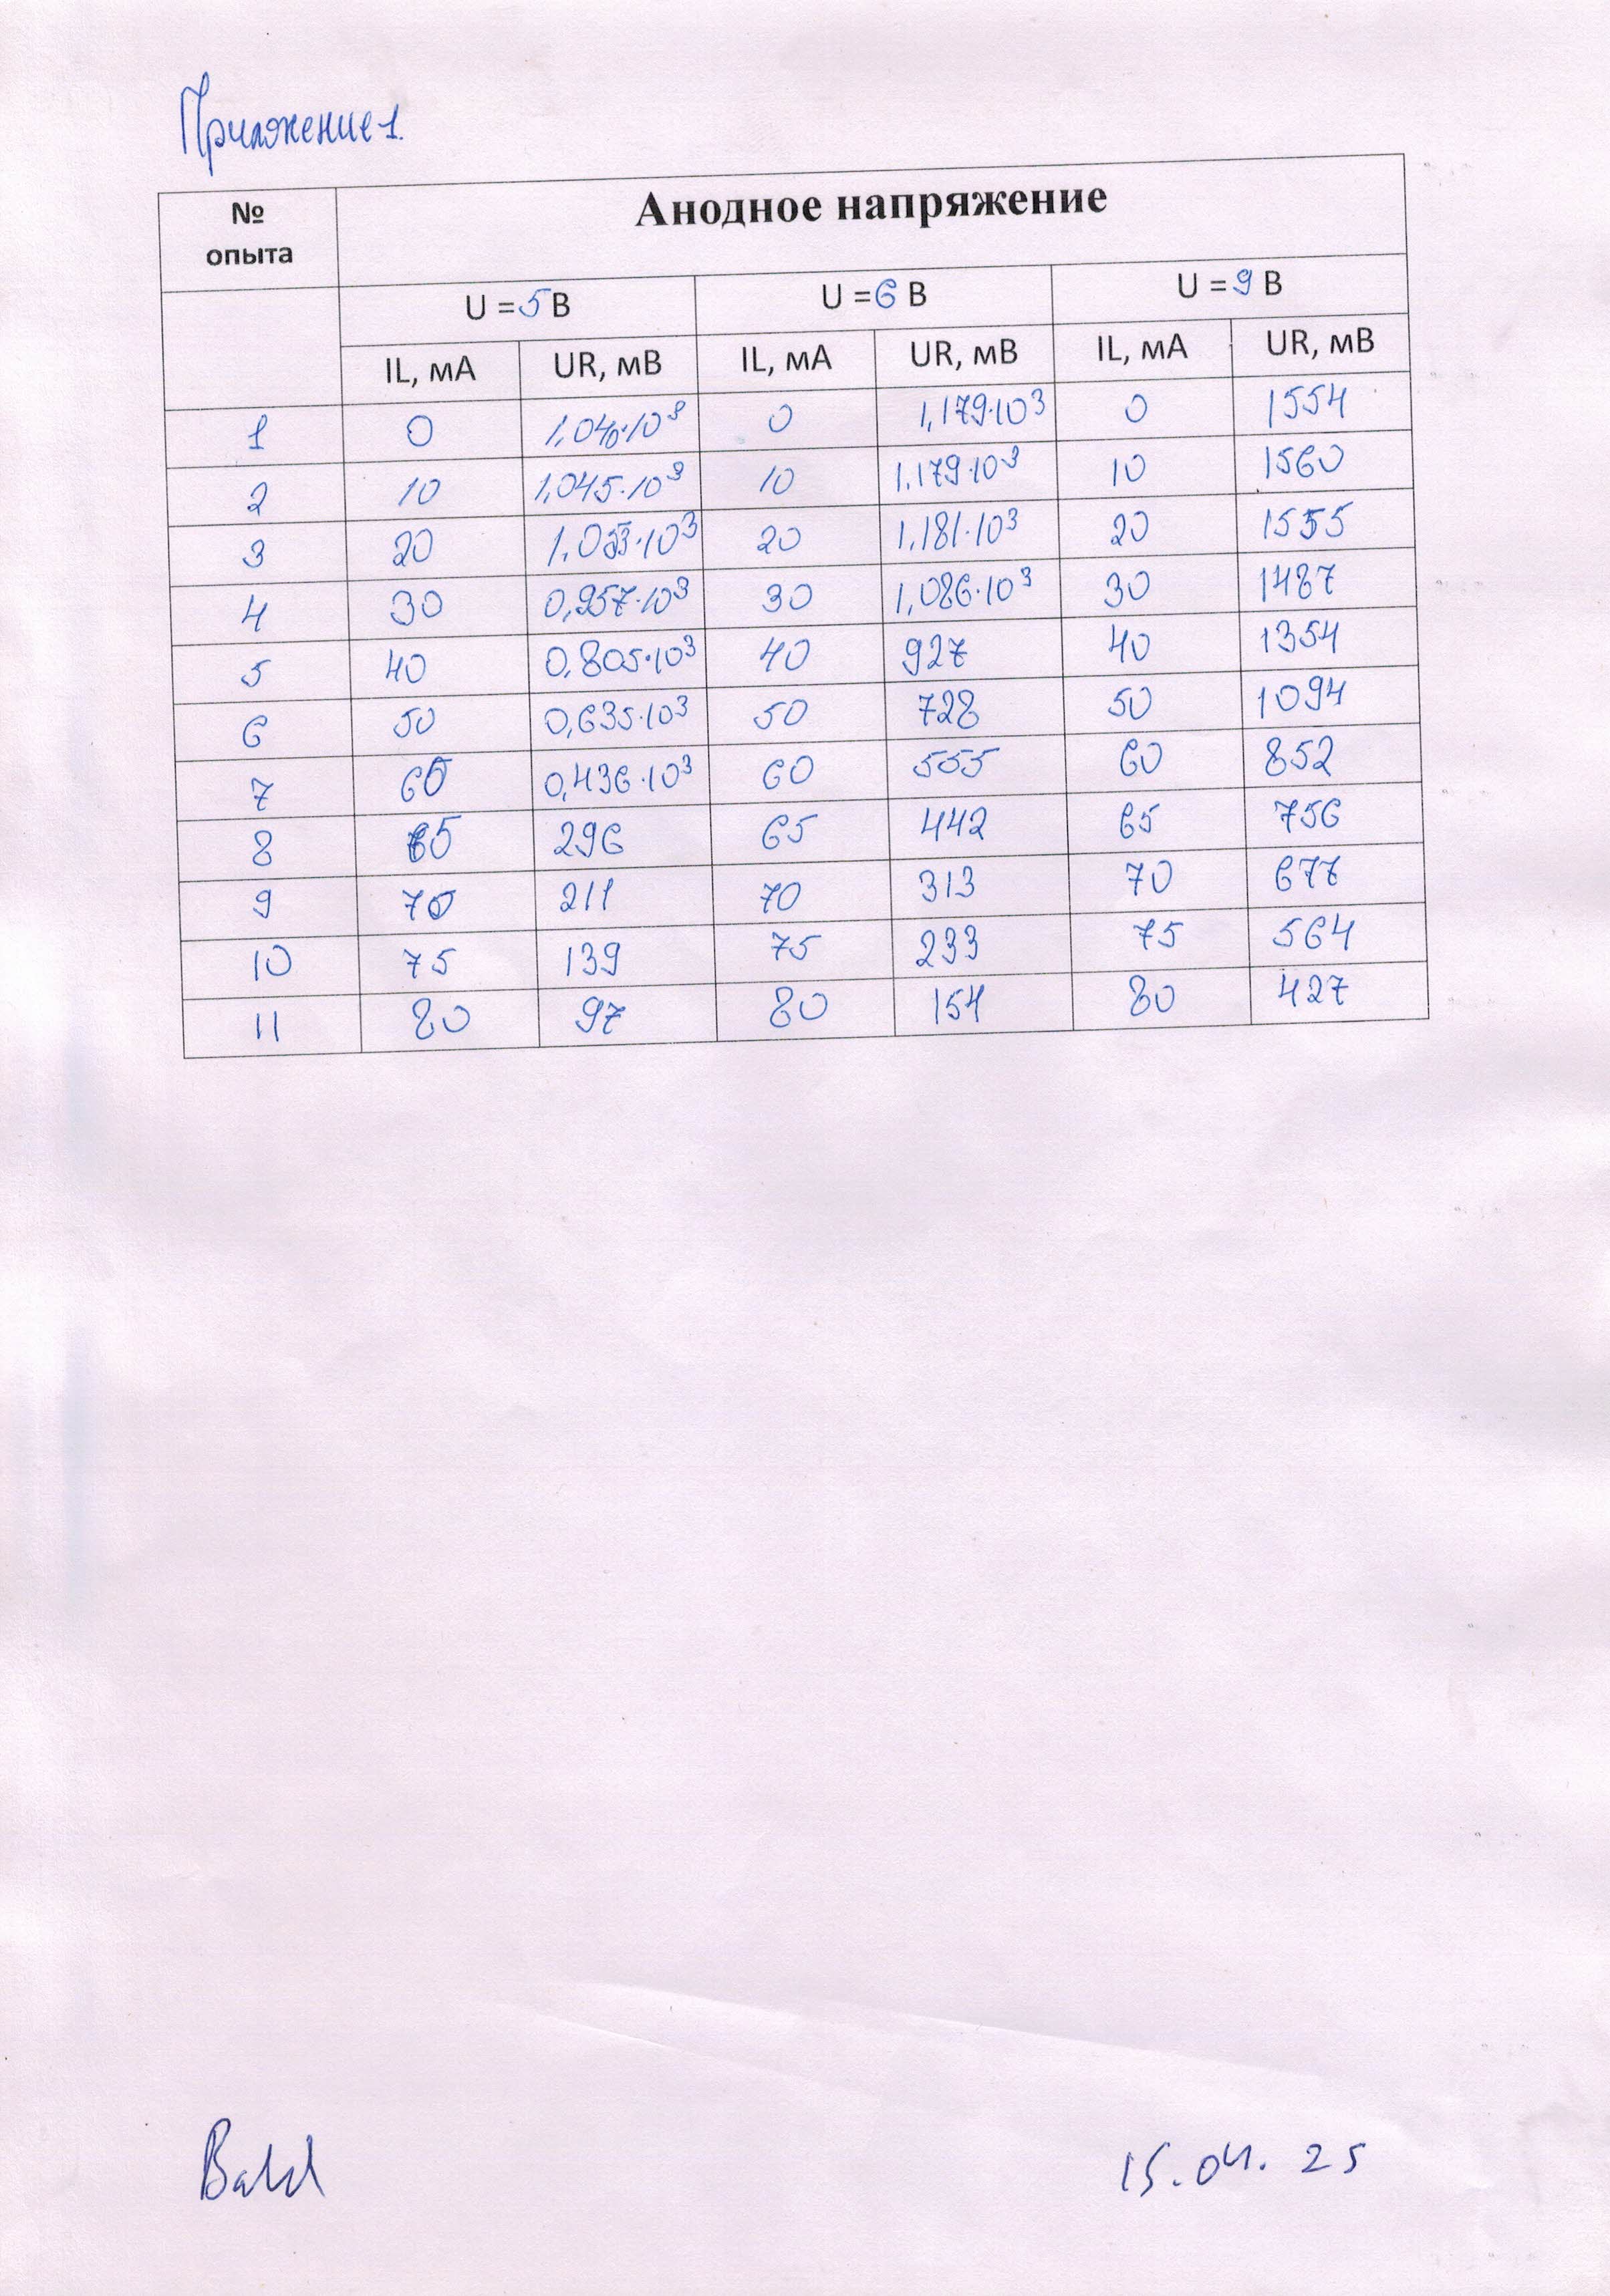 Приложение 1.
№ опыта Анодное напряжение
U = 5 В U = 6 В U = 9 В
IL, мА UR, мВ IL, мА UR, мВ IL, мА UR, мВ
1 0 1,040·10³ 0 1,179·10³ 0 1554
2 10 1,045·10³ 10 1,179·10³ 10 1560
3 20 1,053·10³ 20 1,181·10³ 20 1555
4 30 0,957·10³ 30 1,086·10³ 30 1487
5 40 0,805·10³ 40 927 40 1354
6 50 0,635·10³ 50 728 50 1094
7 60 0,436·10³ 60 555 60 852
8 65 296 65 442 65 756
9 70 211 70 313 70 677
10 75 139 75 233 75 564
11 80 97 80 154 80 427
15.04.25